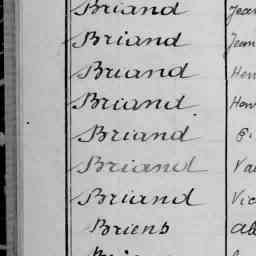 Briand Jean
Briand Jean
Briand Hen
Briand Hen
Briand
Briand Va
Briand Vic
Briens